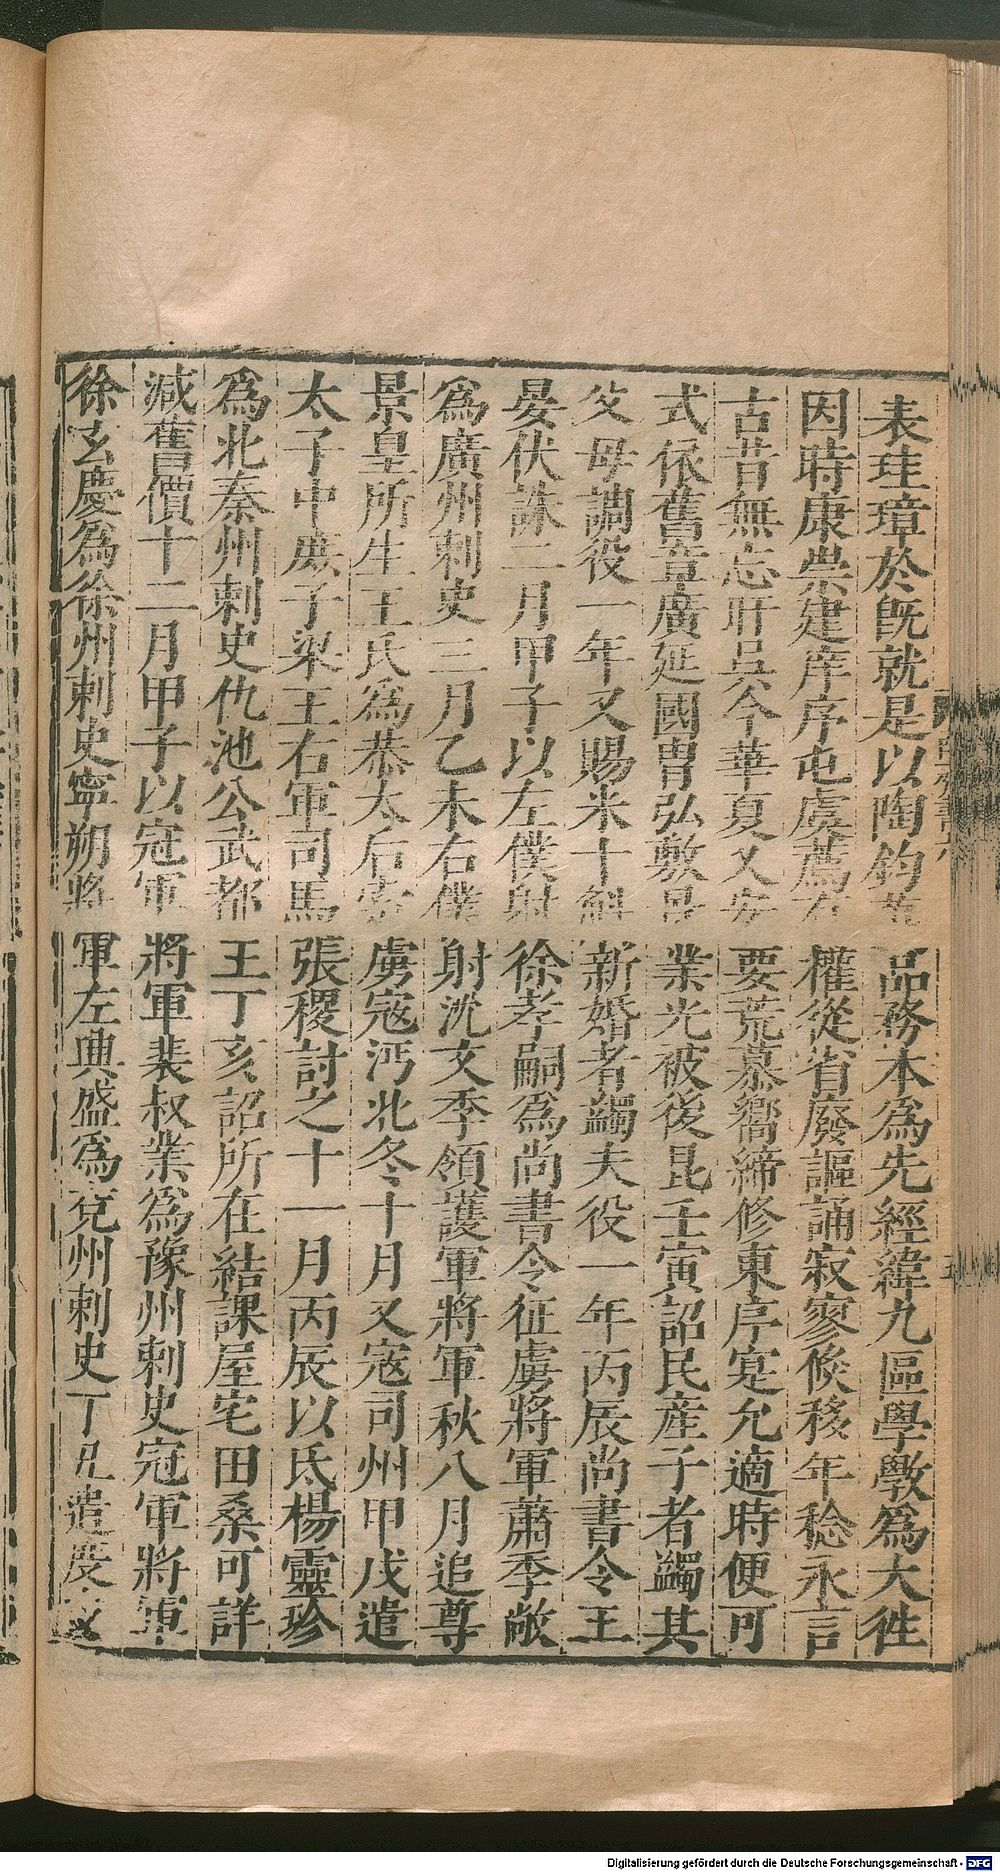 表珪璋於旣就是以陶鈞萬品務本爲先經緯九區學斅爲大徃
因時康崇建庠序屯虞薦有權從省廢謳誦寂寥倐移年稔永言
古昔無忘旰昃今華夏乂安要荒慕嚮締修東序寔允適時便可
式依舊章廣延國胄弘敷景業光被後昆壬寅詔民產子者蠲其
父母調役一年又賜米十斛新婚者蠲夫役一年丙辰尚書令王
晏伏誅二月甲子以左僕射徐孝嗣爲尚書令征虜將軍蕭季敞
爲廣州刺史三月乙未右僕射沈文季領護軍將軍秋八月追尊
景皇所生王氏爲恭太后索虜寇沔北冬十月又寇司州甲戌遣
太子中庶子梁王右軍司馬張稷討之十一月丙辰以氐楊靈珍
爲北秦州刺史仇池公武都王丁亥詔所在結課屋宅田桑可詳
減舊價十二月甲子以冠軍將軍裴叔業爲豫州刺史冠軍將軍
徐玄慶爲徐州刺史寧朔將軍左興盛爲兗州刺史丁丑遣度支
Digitalisierung gefördert durch die Deutsche Forschungsgemeinschaft - DFG